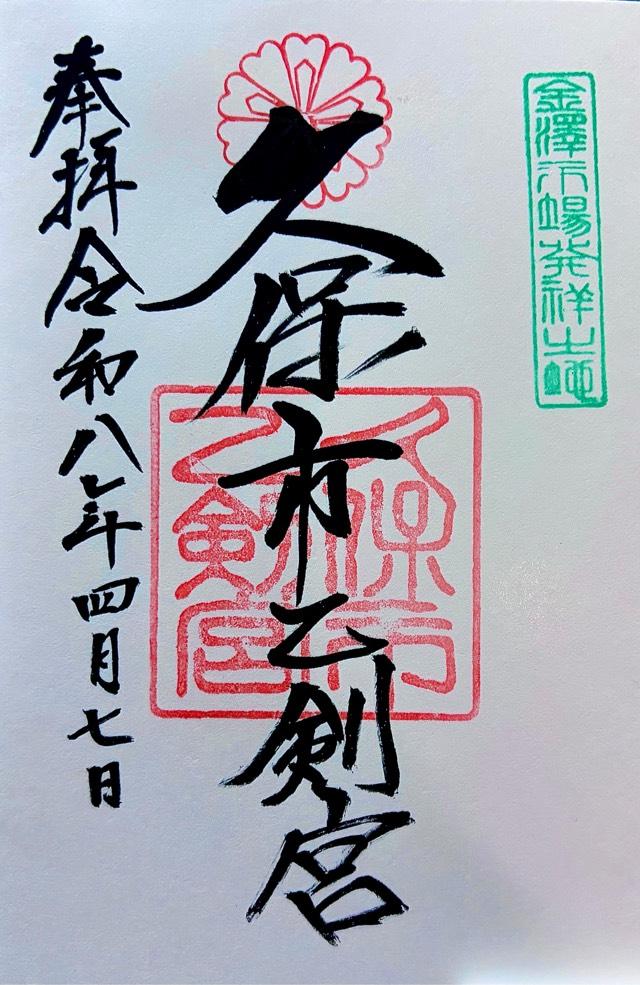 金澤市場発祥之地
久保市乙剣宮
久保市
乙剣宮
奉拝令和八年四月七日